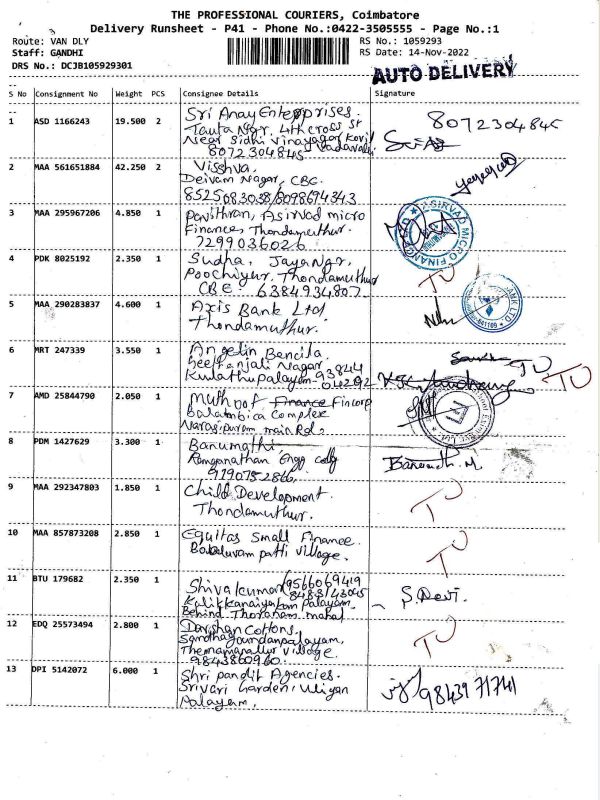 THE PROFESSIONAL COURIERS, Coimbatore
Delivery Runsheet - P41 - Phone No.:0422-3505555 - Page No.:1
Route: VAN DLY
RS No.: 1059293
Staff: GANDHI
RS Date: 14-Nov-2022
DRS No.: DCJB105929301
AUTO DELIVERY
S No Consignment No Weight PCS Consignee Details Signature
1 ASD 1166243 19.500 2 Sri Anay Enterprises.
4th cross st
Near Sidhi Vinayagar Kovil
Vadavalli
8072304845
8072304845
2 MAA 561651884 42.250 2 Visshva,
Deivam Nagar, CBE.
8525683038/8098694343
3 MAA 295967206 4.850 1 Pavithran, Asirvad micro
Finance, Thondamuthur.
7299036026
ASIRVAD MICRO FINANCE
4 PDK 8025192 2.350 1 Sudha, JayaNgr,
Poochiyur, Thondamuthur
CBE. 6384934807
TU
5 MAA 290283837 4.600 1 Axis Bank Ltd
Thondamuthur.
BANK LTD
6 MRT 247339 3.550 1 Angelin Bencila
Geethanjali Nagar
Kulathupalayam - 93844
04292
TU
TU
7 AMD 25844790 2.050 1 Muthoot Finance Fincorp
Balambica Complex
Narasipuram main Rd.
8 PDM 1427629 3.300 1 Banumathi
Ranganathan Engg. collg
9190752866
Banumathi.M
9 MAA 292347803 1.850 1 Child Development.
Thondamuthur.
TU
10 MAA 857873208 2.850 1 Equitas Small Finance.
patti village.
TU
11 BTU 179682 2.350 1 Shivakumar (9566069419
Kalikkanaiyakam Palayam
Behind Thoranam mahal
S.Devi.
12 EDQ 25573494 2.800 1 Darshan Cottons,
Sandhagoundanpalayam,
village
9843860960
TU
13 DPI 5142072 6.000 1 Shri pandit Agencies.
Srivari Garden, Uliyan
Palayam,
98439 71741